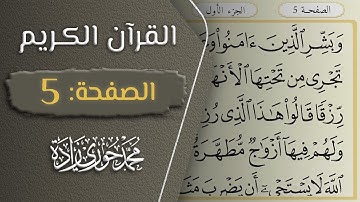 القرآن الكريم
الصفحة: 5
محمد حوري زاده
الصفحة 5
الجزء الأول
وَبَشِّرِ ٱلَّذِينَ ءَامَنُوا۟
تَجْرِى مِن تَحْتِهَا ٱلْأَنْهَـ
رِّزْقًا قَالُوا۟ هَـٰذَا ٱلَّذِى رُزِ
وَلَهُمْ فِيهَآ أَزْوَٰجٌ مُّطَهَّرَةٌ
ٱللَّهَ لَا يَسْتَحْىِۦٓ أَن يَضْرِبَ مَثَـ